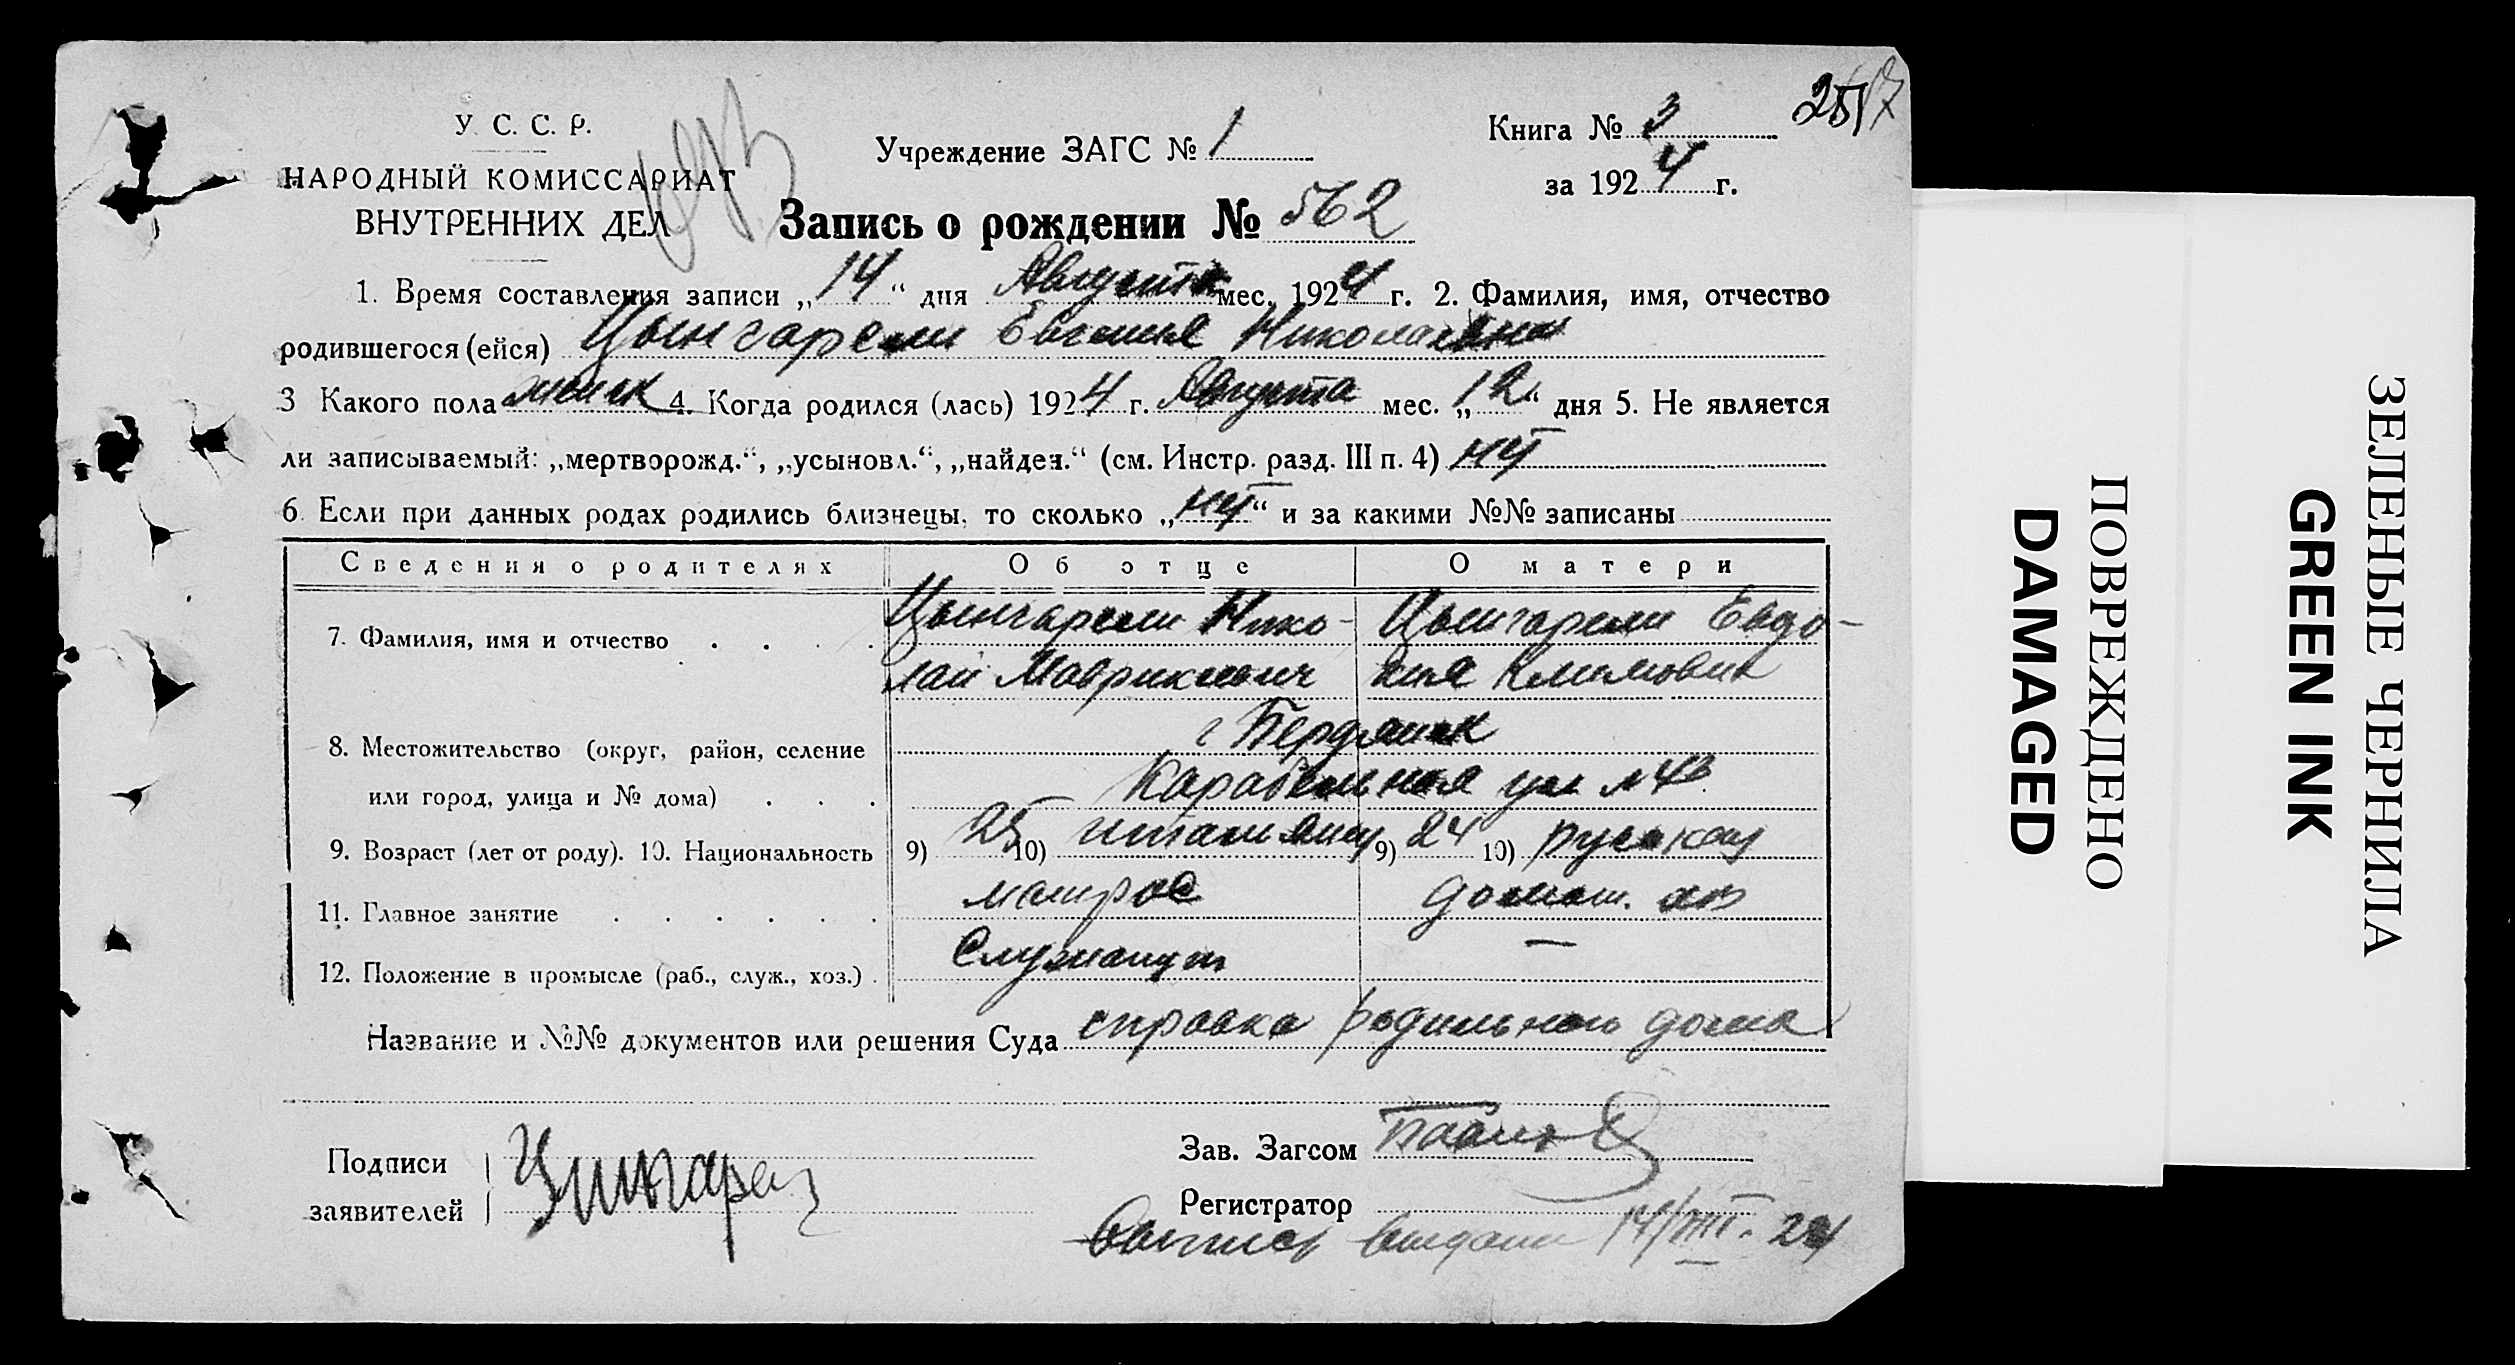 257
У. С. С. Р.
НАРОДНЫЙ КОМИССАРИАТ
ВНУТРЕННИХ ДЕЛ
Учреждение ЗАГС № 1
Книга № 3
за 1924 г.
Запись о рождении № 562
1. Время составления записи „14“ дня Августа мес. 1924 г. 2. Фамилия, имя, отчество
родившегося (ейся) Цынгарели Евгения Николаевна
3 Какого пола женск 4. Когда родился (лась) 1924 г. Августа мес. „12“ дня 5. Не является
ли записываемый: „мертворожд.“, „усыновл.“, „найден.“ (см. Инстр. разд. III п. 4) нет
6. Если при данных родах родились близнецы, то сколько „нет“ и за какими №№ записаны
Сведения о родителях Об отце О матери
7. Фамилия, имя и отчество Цынгарели Нико- Цынгарели Евдо-
лай Маврикиевич кия Климовна
г Бердянск
8. Местожительство (округ, район, селение
или город, улица и № дома) Карабельная ул №43
9. Возраст (лет от роду). 10. Национальность 9) 25 10) итальянец 9) 24 10) русская
11. Главное занятие матрос домаш. хоз
12. Положение в промысле (раб., служ., хоз.) Служащий —
Название и №№ документов или решения Суда справка родильного дома
Подписи
заявителей
Зав. Загсом
Регистратор
Выпись выдана 14/VIII. 24
ПОВРЕЖДЕНО
DAMAGED
ЗЕЛЕНЫЕ ЧЕРНИЛА
GREEN INK